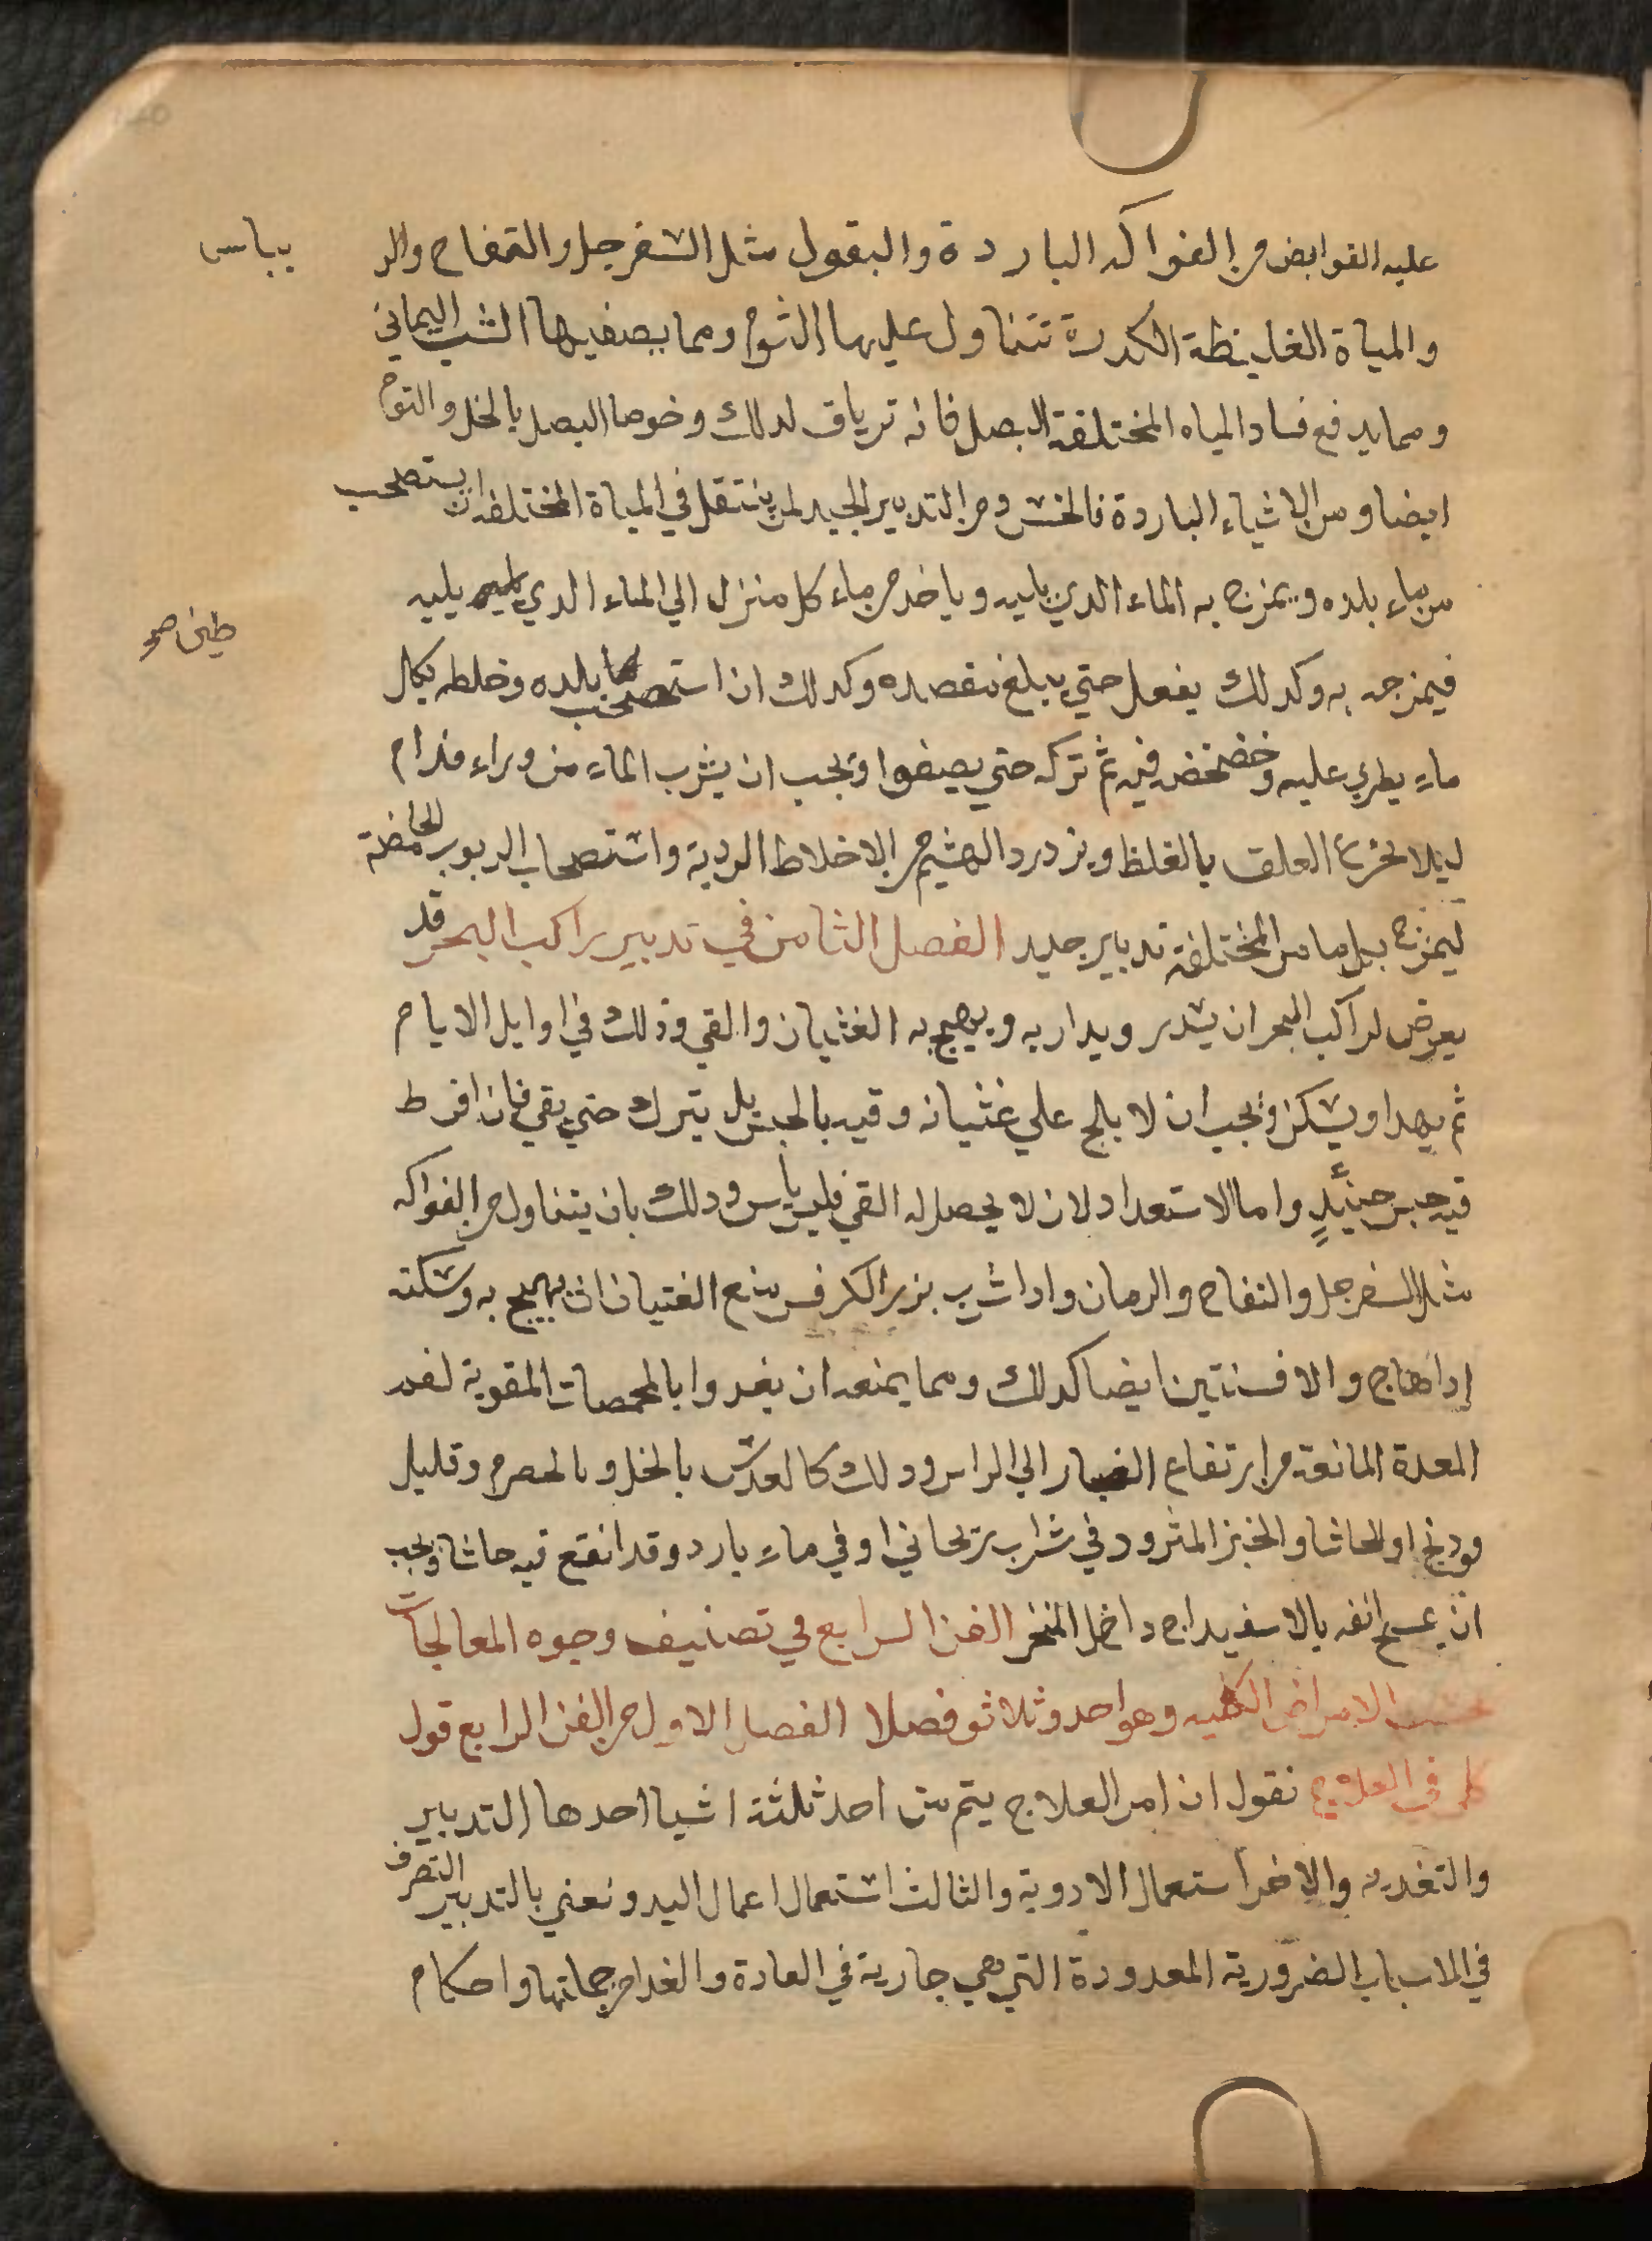 عليه القوابض من الفواكه الباردة والبقول مثل السفرجل والتفاح والر
يباس
والمياة الغليظة الكدرة تتناول عليها الثوم ومما يصفيها الشب اليماني
ومما يدفع فساد المياه المختلفة البصل فانه ترياق لدلك وخوصا البصل بالخل والتوم
ايضا ومن الاشياء الباردة فالخس ومن التدبير الجيد لمن ينتقل في المياة المختلفة ان يستصحب
من ماء بلده ويمزج به الماء الدي يليه وياخد من ماء كل منزل الي الماء الدي يليه
طين صح
فيمزجه به وكدلك يفعل حتي يبلغ مقصده وكدلك ان استصحب بلده وخلطه بكل
ماء يطري عليه وخضخضه فيه ثم تركه حتي يصفوا ويجب ان يشرب الماء من وراء فدام
ليلا يجرع العلق بالغلظ ويزدرد الهشيم من الاخلاط الردية واستصحاب الربوب الحامضة
ليمزج بكل ما من المختلفة تدبير جديد الفصل الثامن في تدبير راكب البحر قد
يعرض لراكب البحر ان يشدر ويدار به ويهيج به الغثيان والقي وذلك في اوايل الايام
ثم يهدا ويسكن ويجب ان لا يلج علي غثيانه وقيه بالحبس بل يترك حتي يقي فان افرط
فيه حبس حينئدٍ واما الاستعداد لان لا يحصل له القي فليس بأس ودلك بان يتناول من الفواكه
مثل السفرجل والتفاح والرمان وادا شرب بزر الكرفس منع الغتيان ان يهيج به وسكنه
إدا هاج والافسنتين ايضا كدلك ومما يمنعه ان يغدوا بالمحمصات المقوية لفم
المعدة المانعة من ارتفاع البخار الي الراس ودلك كالعدس بالخل وبالحصرم وقليل
فودنج او الحاشا والخبز المثرود في شراب ريحاني او في ماء بارد وقد انقع فيه حاشا ويجب
ان يمسح انفه بالاسفيداج داخل المنخر الفن الرابع في تصنيف وجوه المعالجات
بحسب الامراض الكليه وهو احد وثلاثو فصلا الفصل الاول من الفن الرابع قول
كلي في العلاج نقول ان امر العلاج يتم من احد ثلثة اشيا احدها التدبير
والتغديه والاخر استعمال الادوية والثالث استعمال اعمال اليد ونعني بالتدبير التصرف
في الاسباب الضرورية المعدودة التي هي جارية في العادة والغدا من جملتها واحكام